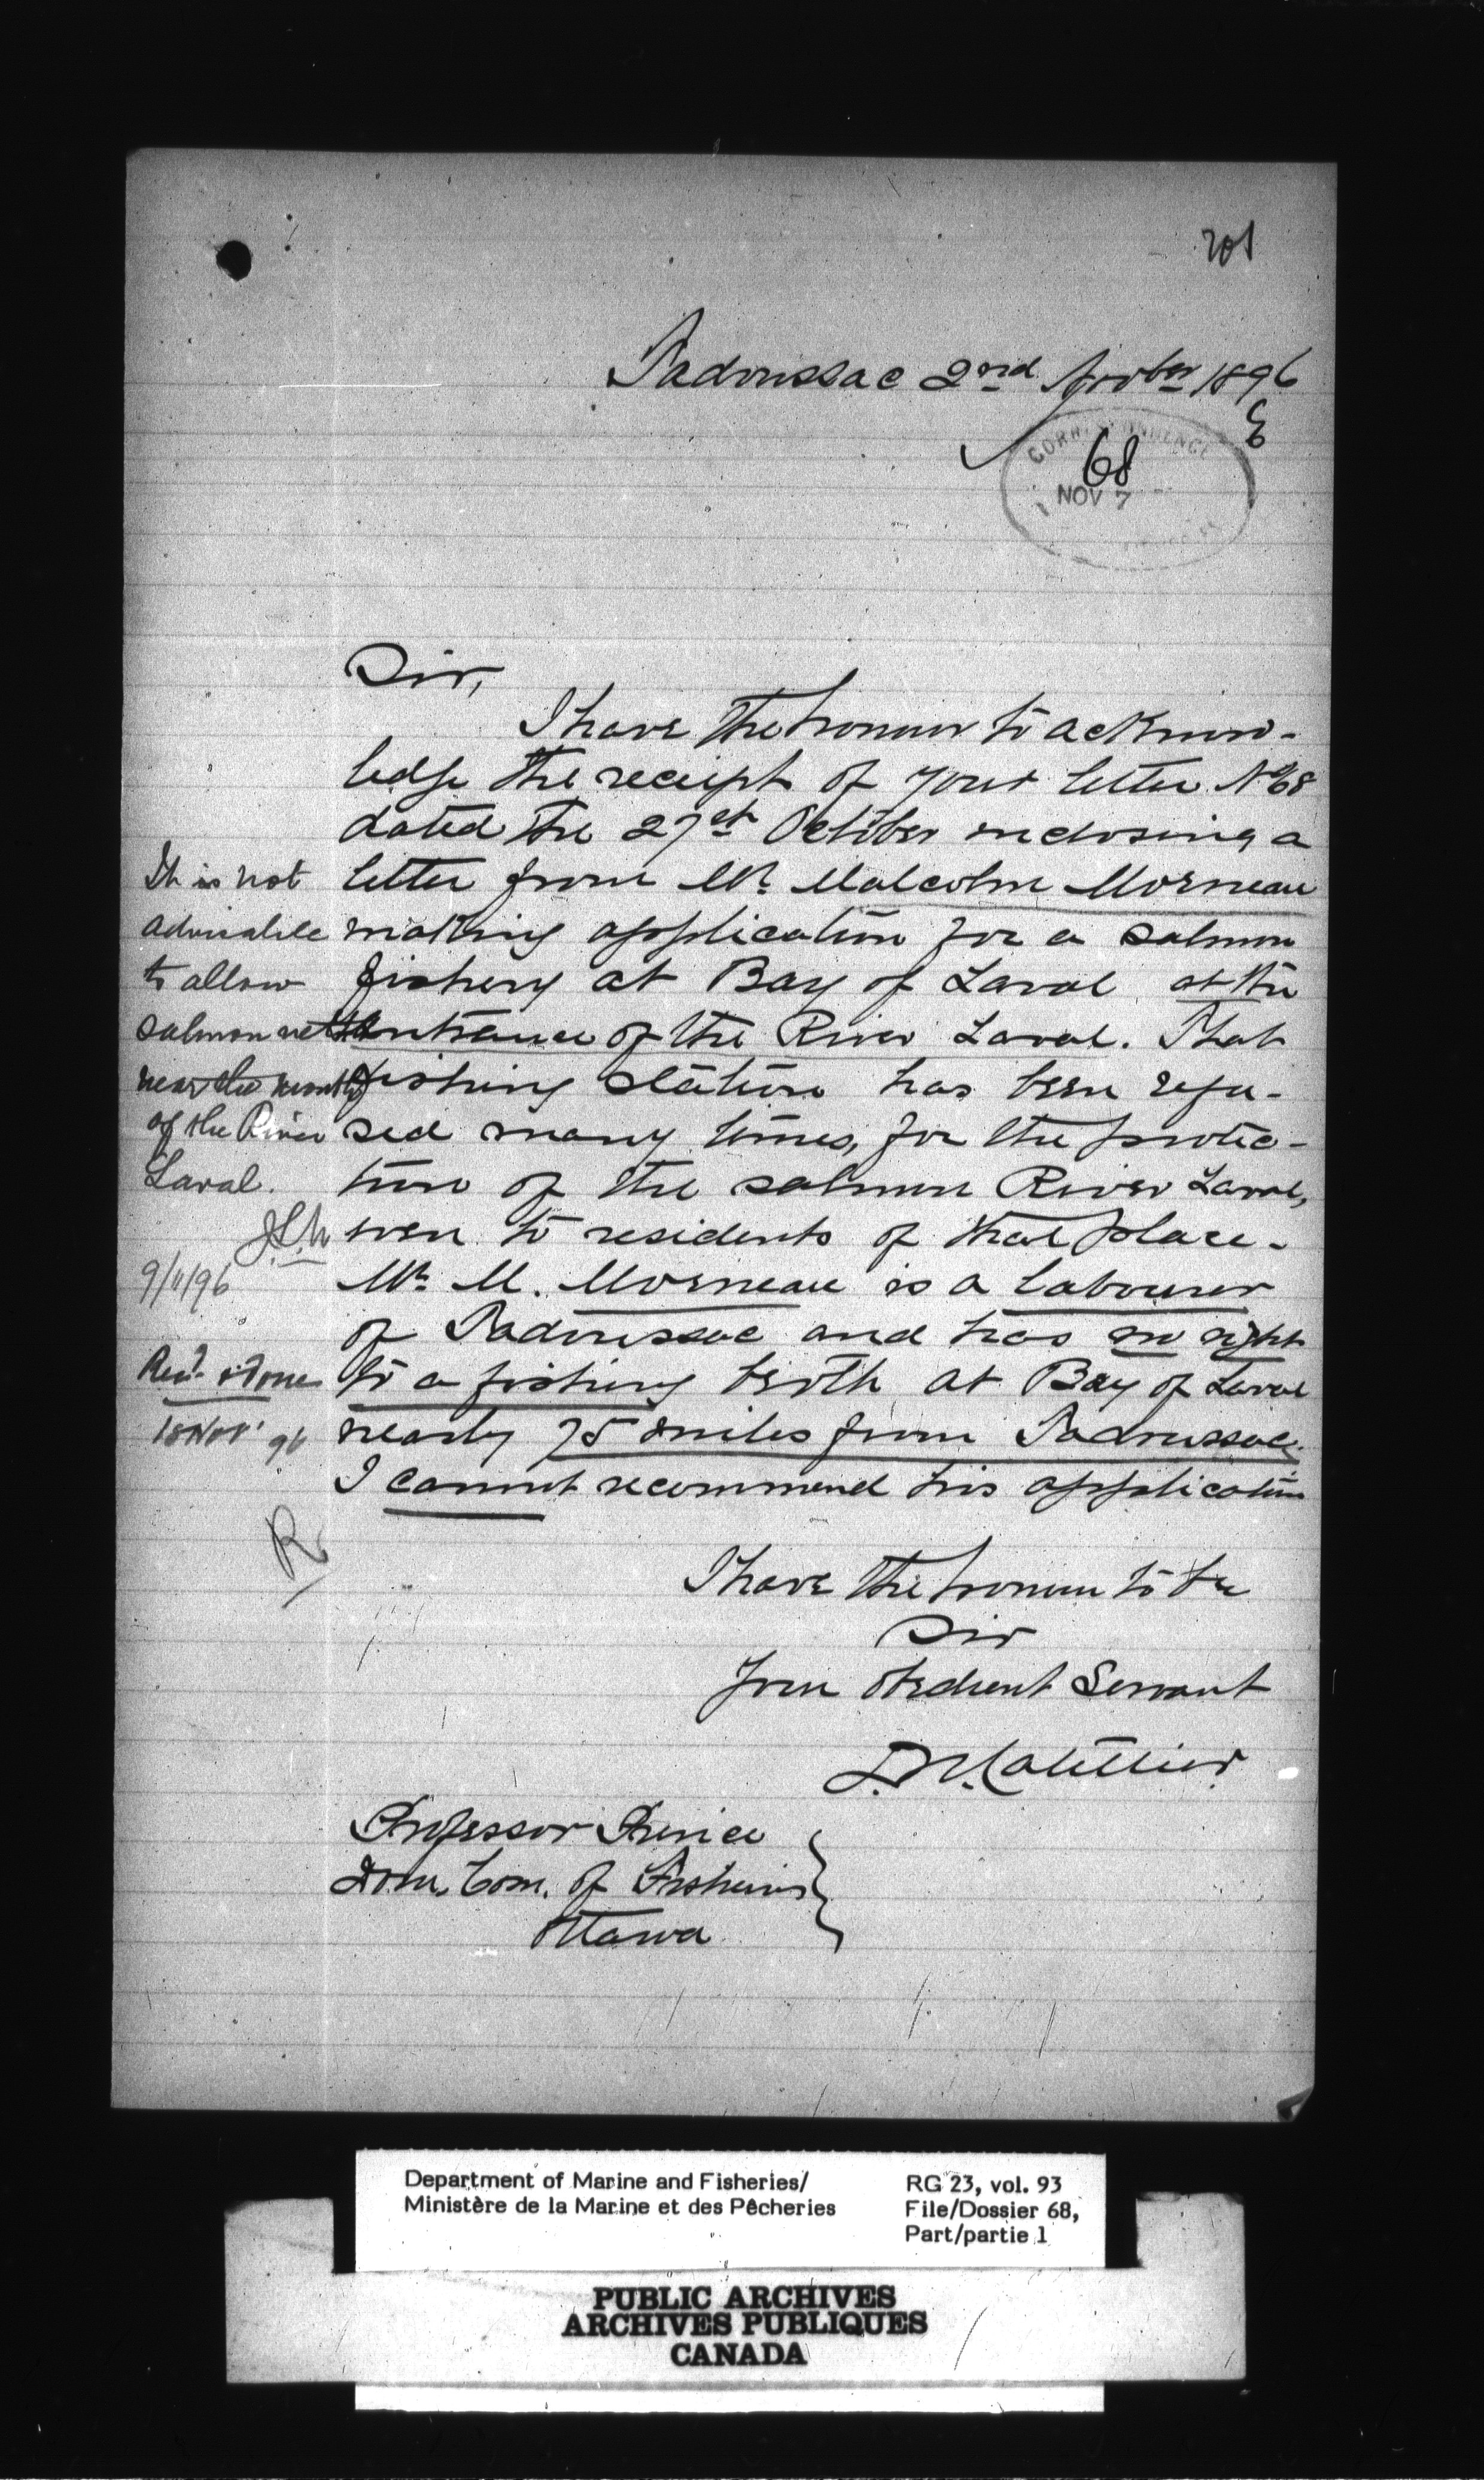 201
Tadoussac 2nd Novber 1896
CORRESPONDENCE
68
NOV 7
Sir,
I have the honour to acknow-
ledge the receipt of your letter No 68
dated the 27st October enclosing a
letter from Mr Malcolm Morneau
making application for a salmon
fishery at Bay of Laval at the
entrance of the River Laval. That
fishing station has been refu-
sed many times, for the protec-
tion of the salmon River Laval,
even to residents of that place.
Mr M. Morneau is a labourer
of Tadoussac and has no right
to a fishing berth at Bay of Laval
nearly 75 miles from Tadoussac.
I cannot recommend his application
I have the honour to be
Sir
Your obedient Servant
Professor Prince
Dom. Com. of Fisheries
Ottawa
It is not
advisable
to allow
salmon nets
near the mouth
of the River
Laval.
9/11/96
18 Nov' 96
R
Department of Marine and Fisheries/
Ministère de la Marine et des Pêcheries
RG 23, vol. 93
File/Dossier 68,
Part/partie 1
PUBLIC ARCHIVES
ARCHIVES PUBLIQUES
CANADA